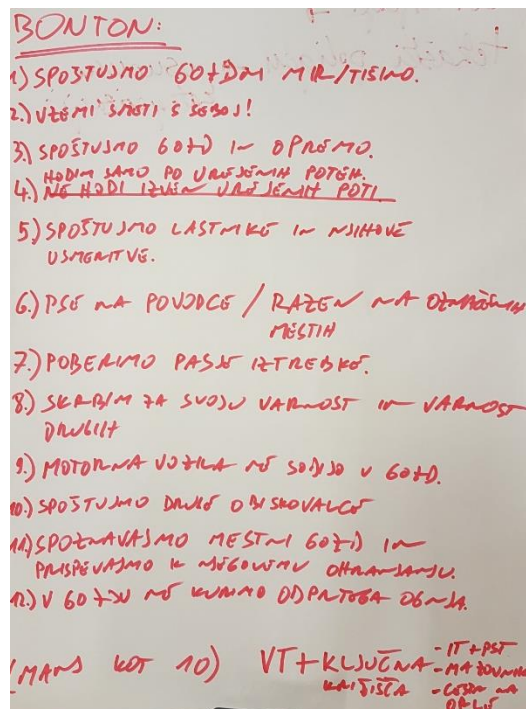 BONTON:
1.) SPOŠTUJMO GOZDNI MIR/TIŠINO.
2.) VZEMI SMETI S SEBOJ!
3.) SPOŠTUJMO GOZD IN OPREMO.
HODIM SAMO PO UREJENIH POTEH.
4.) NE HODI IZVEN UREJENIH POTI
5.) SPOŠTUJMO LASTNIKE IN NJIHOVE
USMERITVE.
6.) PSE NA POVODCE / RAZEN NA OZNAČENIH
MESTIH
7.) POBERIMO PASJE IZTREBKE.
8.) SKRBIM ZA SVOJO VARNOST IN VARNOST
DRUGIH
9.) MOTORNA VOZILA NE SODIJO V GOZD.
10.) SPOŠTUJMO DRUGE OBISKOVALCE
11.) SPOZNAVAJMO MESTNI GOZD IN
PRISPEVAJMO K NJEGOVEMU OHRANJANJU.
12.) V GOZDU NE KURIMO ODPRTEGA OGNJA.
(MANJ KOT 10) VT + KLJUČNA
KRIŽIŠČA
- IT + PST
- CESTA NA